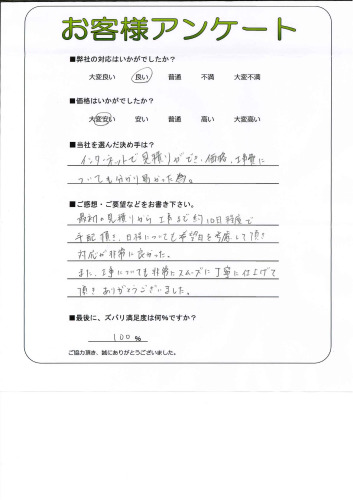 お客様アンケート
■弊社の対応はいかがでしたか？
大変良い 良い 普通 不満 大変不満
■価格はいかがでしたか？
大変安い 安い 普通 高い 大変高い
■当社を選んだ決め手は？
インターネットで見積りができ、価格、工事費に
ついても分かり易かった為。
■ご感想・ご要望などをお書き下さい。
最初の見積りから工事まで約10日程度で
手配頂き、日程についても希望日を考慮して頂き
対応が非常に良かった。
また、工事についても非常にスムーズに丁寧に仕上げて
頂きありがとうございました。
■最後に、ズバリ満足度は何%ですか？
100 %
ご協力頂き、誠にありがとうございました。